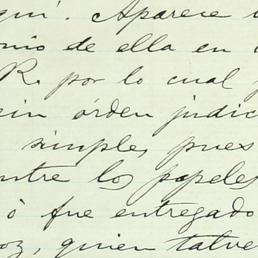 aquí. Aparece
onio de ella en
R. por lo cual
sin órden judic
simples, pues
entre los papeles
ò fue entregado
oz, quien talve